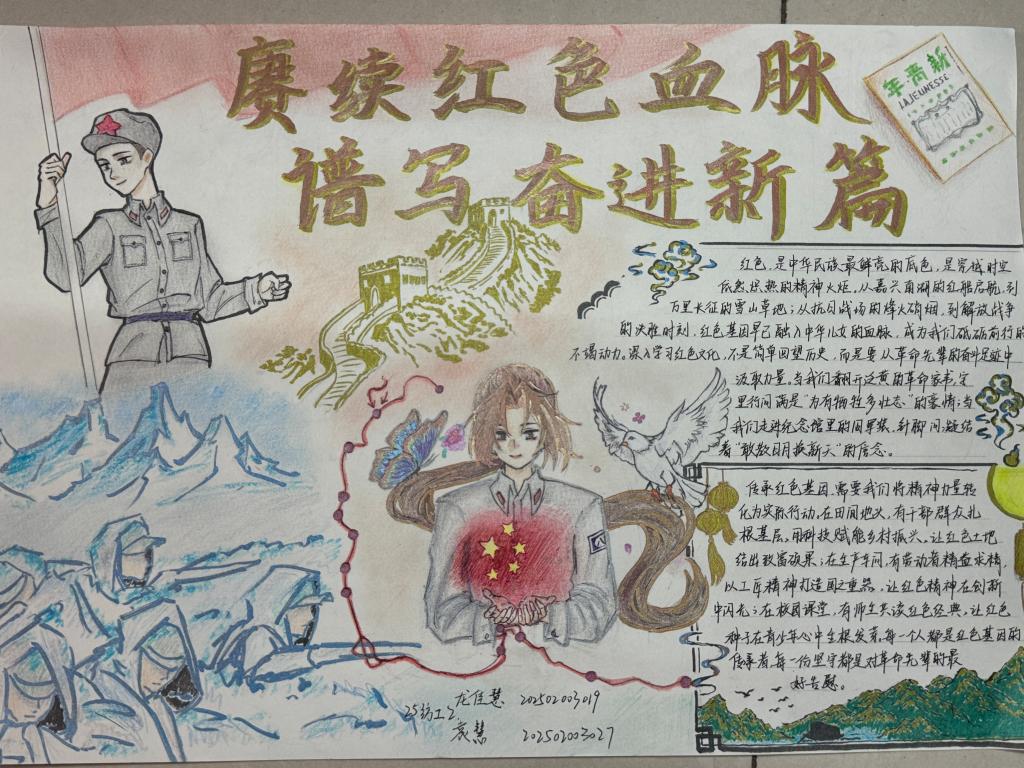 赓续红色血脉
谱写奋进新篇
新青年
LAJEUNESSE
红色,是中华民族最鲜亮的底色,是穿越时空
依然炽热的精神火炬,从嘉兴南湖的红船启航,到
万里长征的雪山草地;从抗日战场的烽火硝烟,到解放战争
的决胜时刻,红色基因早已融入中华儿女的血脉,成为我们砥砺前行的
不竭动力。深入学习红色文化,不是简单回望历史,而是要从革命先辈的奋斗足迹中
汲取力量,当我们翻开泛黄的革命家书,字
里行间满是“为有牺牲多壮志”的豪情;当
我们走进纪念馆里的旧军装,针脚间凝结
着“敢教日月换新天”的信念。
传承红色基因,需要我们将精神力量转
化为实际行动,在田间地头,有干部群众扎
根基层,用科技赋能乡村振兴,让红色土地
结出致富硕果;在生产车间,有劳动者精益求精,
以工匠精神打造国之重器,让红色精神在创新
中闪光;在校园课堂,有师生共读红色经典,让红色
种子在青少年心中生根发芽,每一个人都是红色基因的
传承者,每一份坚守都是对革命先辈的最
好告慰。
25纺工2 龙佳慧 202502003019
袁慧 202502003027